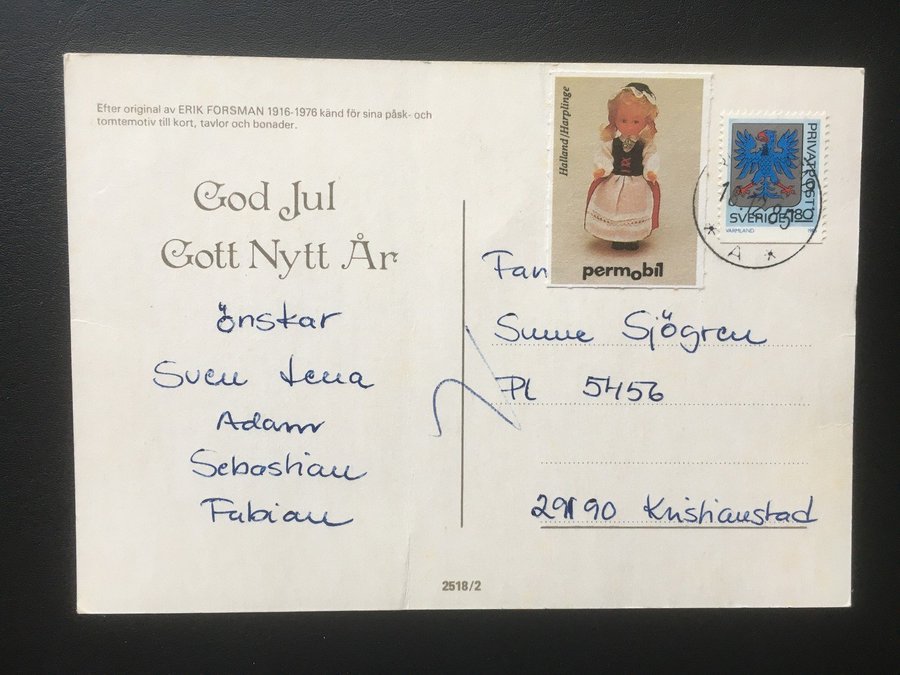 Efter original av ERIK FORSMAN 1916-1976 känd för sina påsk- och
tomtemotiv till kort, tavlor och bonader.
God Jul
Gott Nytt År
önskar
Sven Lena
Adam
Sebastian
Fabian
2518/2
Halland/Harplinge
permobil
PRIVATPOST
SVERIGE 180
VÄRMLAND
12.85
* A *
Fan
Sune Sjögren
Pl 5456
29190 Kristianstad